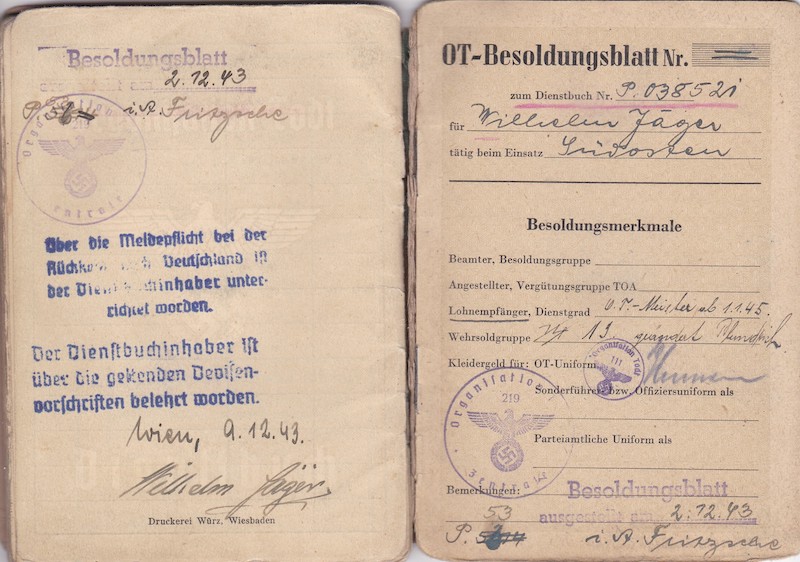 Besoldungsblatt
ausgestellt am 2.12.43
P. i.A. Fritzsche
Organisation
219
Zentrale
Über die Meldepflicht bei der
Rückkehr nach Deutschland ist
der Dienstbuchinhaber unter-
richtet worden.
Der Dienstbuchinhaber ist
über die geltenden Devisen-
vorschriften belehrt worden.
Wien, 9.12.43.
Wilhelm Jäger.
Druckerei Würz, Wiesbaden
OT-Besoldungsblatt Nr.
zum Dienstbuch Nr. P. 038521
für Wilhelm Jäger
tätig beim Einsatz Südosten
Besoldungsmerkmale
Beamter, Besoldungsgruppe
Angestellter, Vergütungsgruppe TOA
Lohnempfänger, Dienstgrad O.T.-Meister ab 1.1.45.
Wehrsoldgruppe 13 geändert
Kleidergeld für: OT-Uniform
Organisation Todt
111
Sonderführer- bzw. Offiziersuniform als
Organisation
219
Zentrale
Parteiamtliche Uniform als
Bemerkungen:
Besoldungsblatt
53
ausgestellt am 2.12.43
P. i.A. Fritzsche